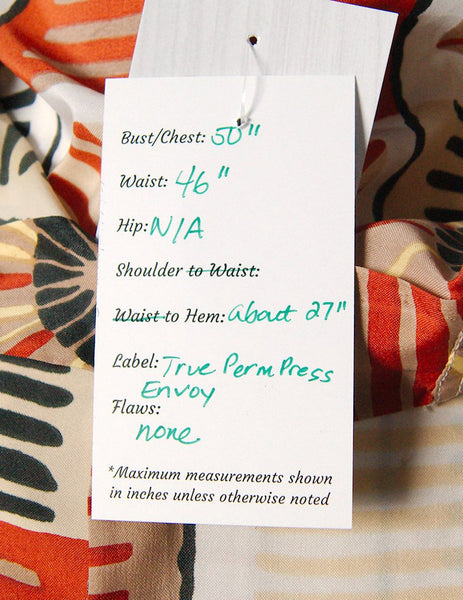 Bust/Chest: 50"
Waist: 46"
Hip: N/A
Shoulder to Waist:
Waist to Hem: about 27"
Label: True Perm Press
Envoy
Flaws:
none
*Maximum measurements shown
in inches unless otherwise noted